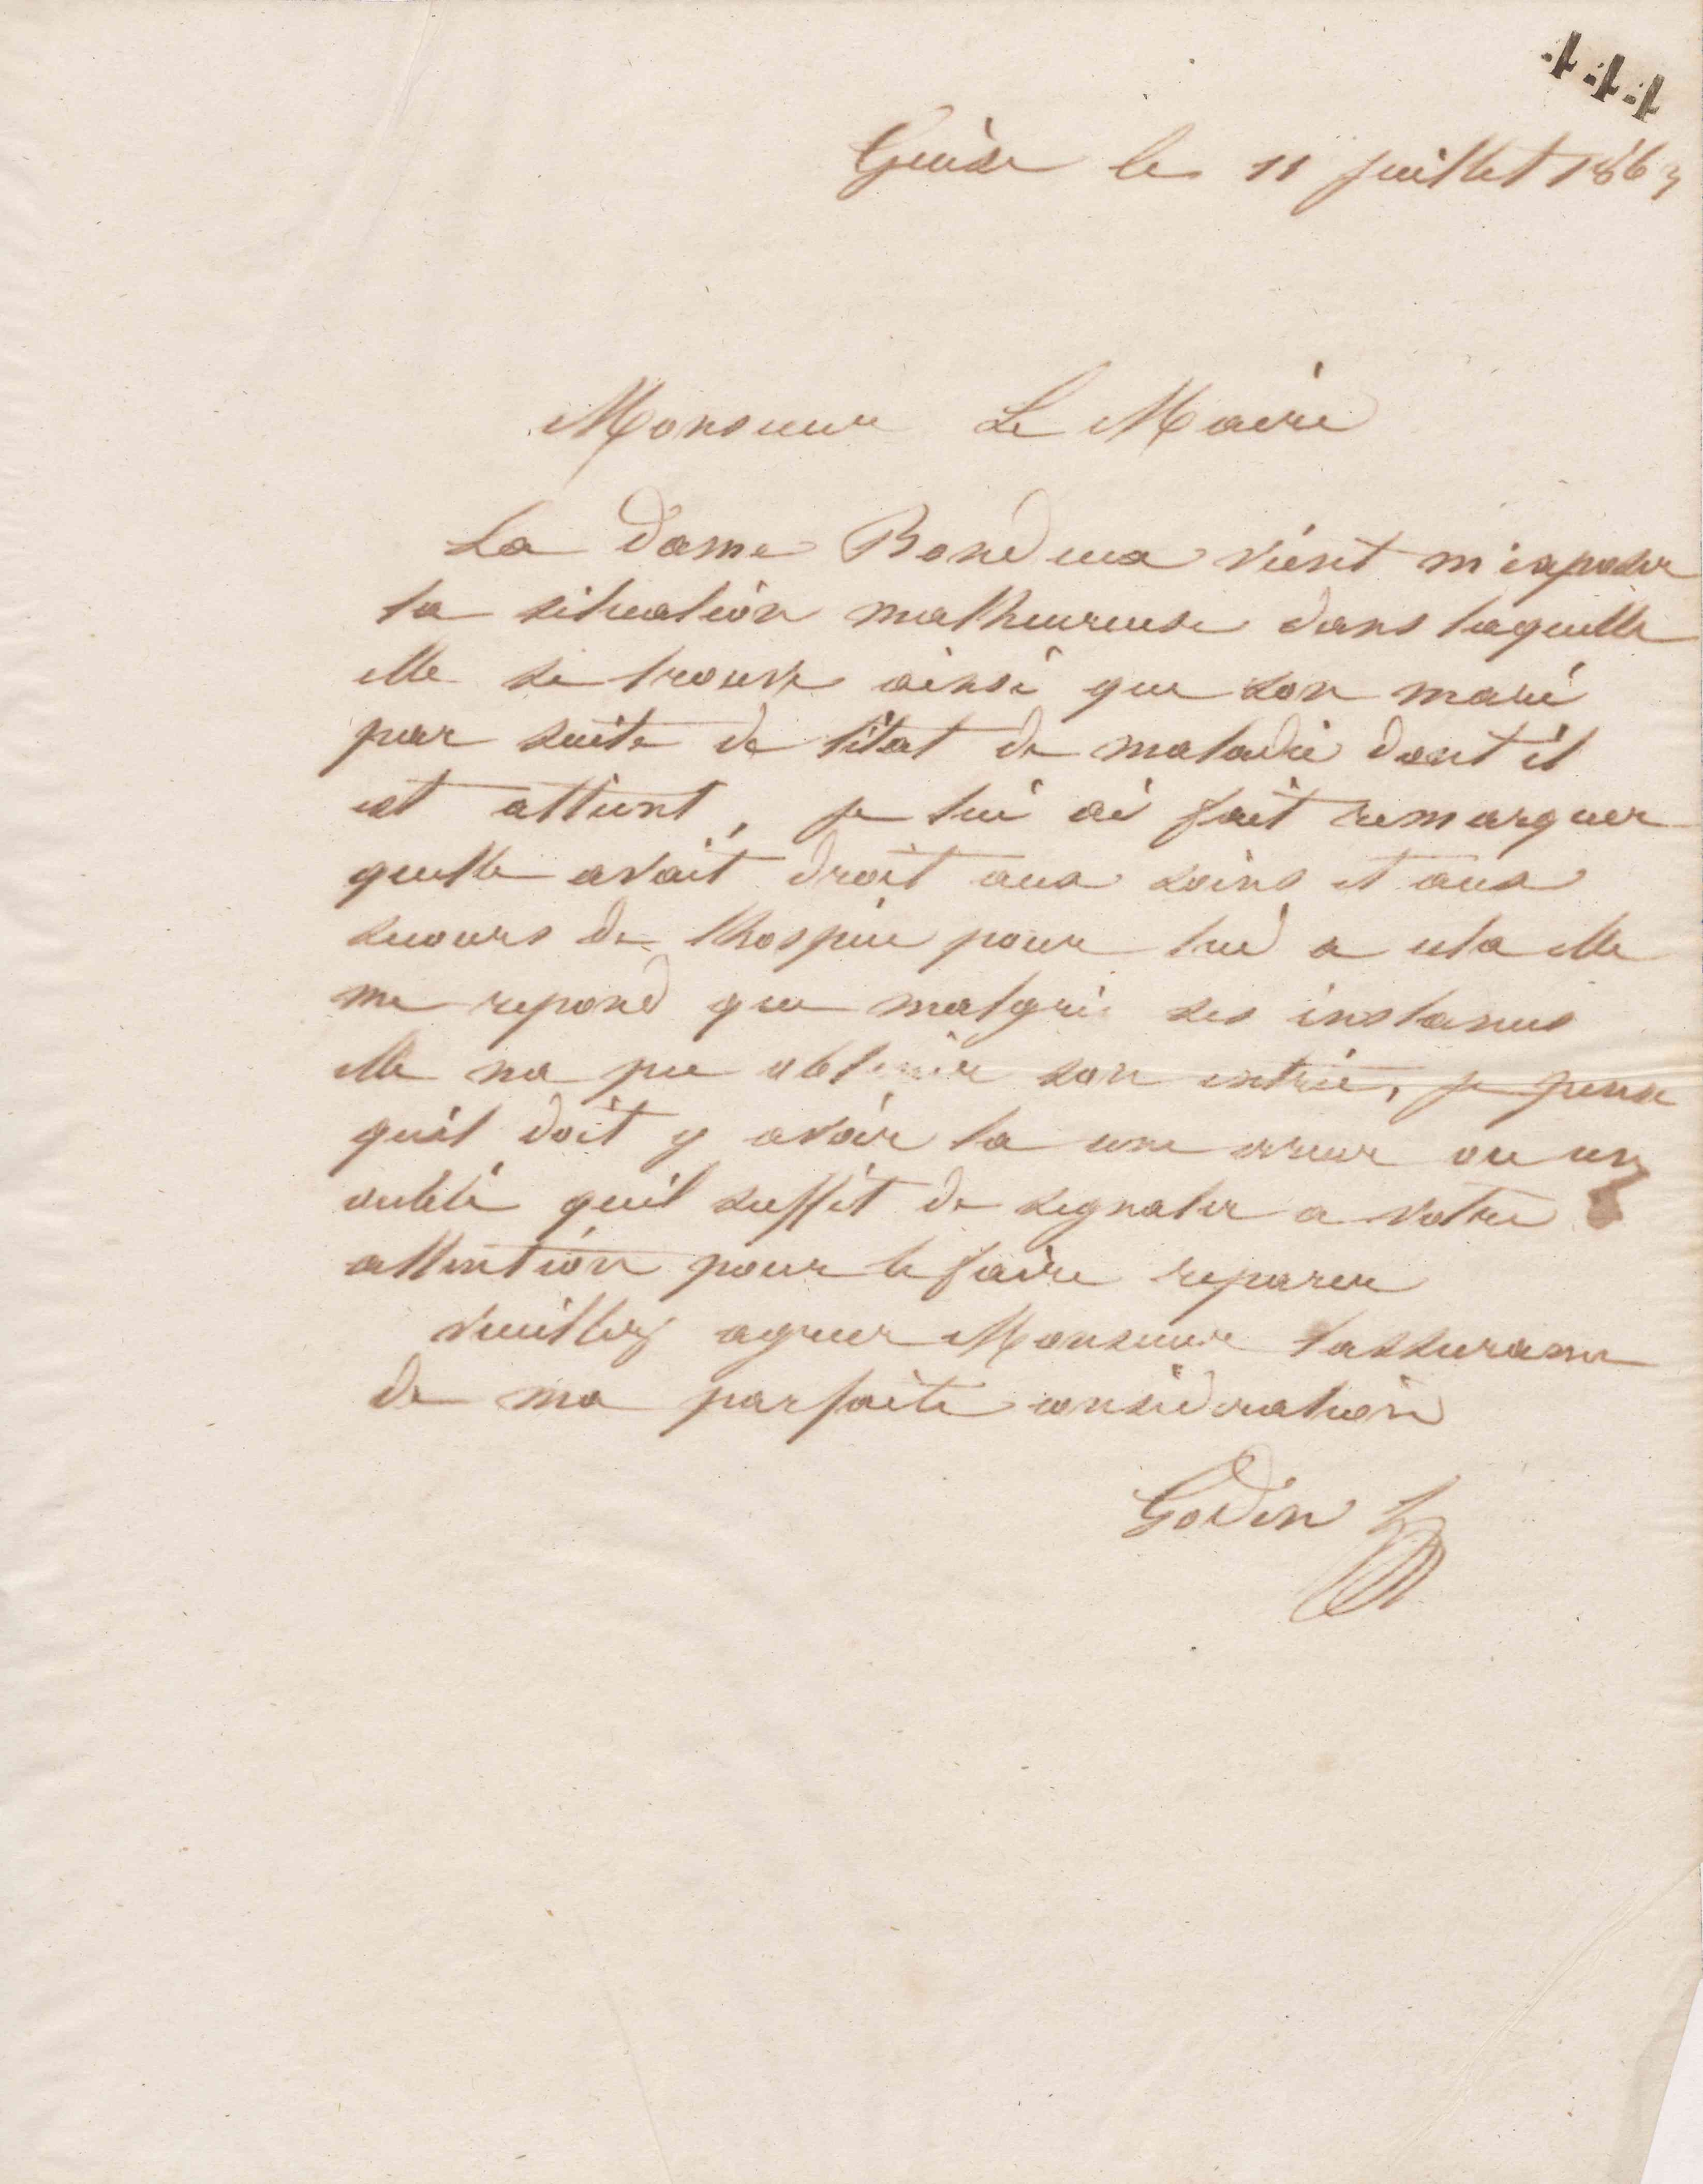 444
Guise le 11 juillet 1863
Monsieur Le Maire
La dame Bondeux vient m'exposer
la situation malheureuse dans laquelle
elle se trouve ainsi que son mari
par suite de l'état de maladie dont il
est atteint, je lui ai fait remarquer
quelle avait droit aux soins et aux
secours de lhospice pour lui a cela elle
me repond que malgré ses instances
elle na pu obtenir son entrée, je pense
quil doit y avoir la une erreur ou un
oubli quil suffit de signaler a votre
attention pour le faire reparer
Veuillez agreer Monsieur lassurance
de ma parfaite consideration
Godin